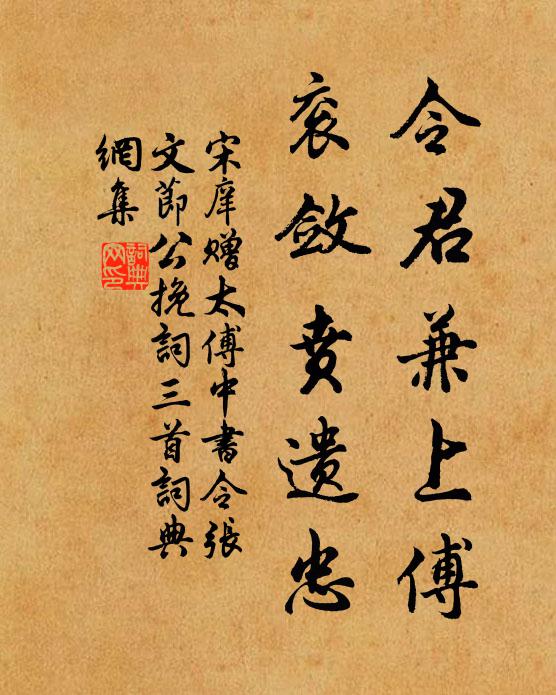 令君兼上傅
衮斂賁遺忠
宋庠贈太傅中書令張
文節公挽詞三首詞典
網集
詞典
网印